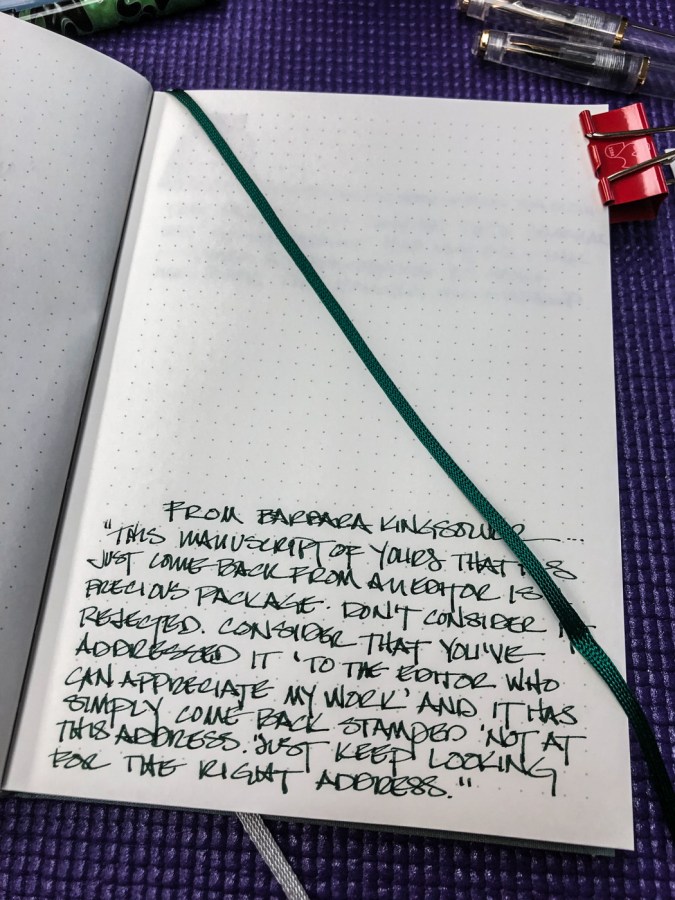 FROM BARBARA KINGSOLVER ...
"THIS MANUSCRIPT OF YOURS THAT HAS
JUST COME BACK FROM AN EDITOR IS A
PRECIOUS PACKAGE. DON'T CONSIDER IT
REJECTED. CONSIDER THAT YOU'VE
ADDRESSED IT 'TO THE EDITOR WHO
CAN APPRECIATE MY WORK' AND IT HAS
SIMPLY COME BACK STAMPED 'NOT AT
THIS ADDRESS.' JUST KEEP LOOKING
FOR THE RIGHT ADDRESS."